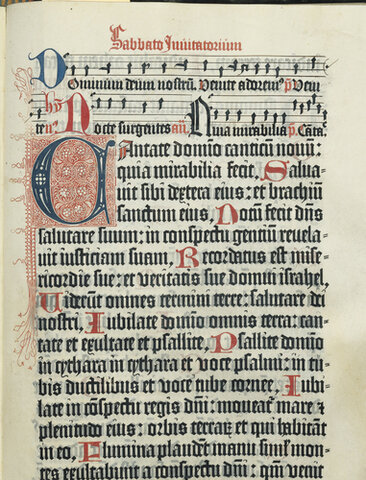 Sabbato Inuitatorium
Dominum deum nostrū. Venite adorem⁹ p̄ Veni
te. hȳ Nocte surgentes añ. Quia mirabilia p̄. Cāta.
CAntate domino canticū nouū:
quia mirabilia fecit, Salua-
uit sibi dextera eius: et brachiū
sanctum eius, Notū fecit dn̄s
salutare suum: in conspectu gentiū reuela-
uit iusticiam suam, Recordatus est mise-
ricordie sue: et veritatis sue domui israhel,
Uiderūt omnes termini terre: salutare dei
nostri, Iubilate domino omnis terra: can-
tate et exultate et psallite, Psallite domino
in cythara in cythara et voce psalmi: in tu-
bis ductilibus et voce tube cornee, Iubi-
late in cōspectu regis dn̄i: moueat᷑ mare ⁊
plenitudo eius: orbis terraꝝ et qui habitāt
in eo, Flumina plaudent manu simul mon-
tes exultabunt a conspectu dn̄i: qm̄ venit